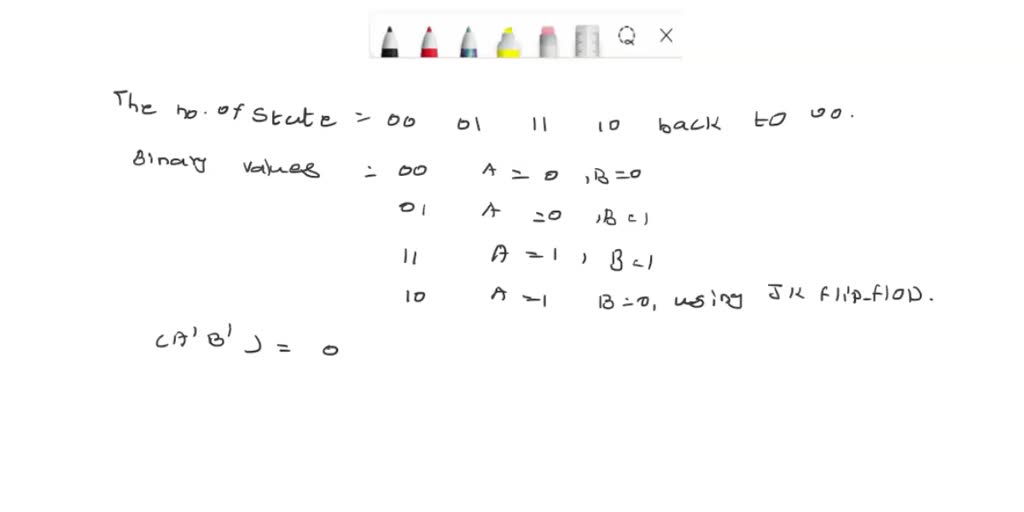 The no. of State = 00 01 11 10 back to 00.
Binary values = 00 A = 0 , B = 0
01 A = 0 , B = 1
11 A = 1 , B = 1
10 A = 1 B = 0, using JK flip-flop.
(A' B') = 0